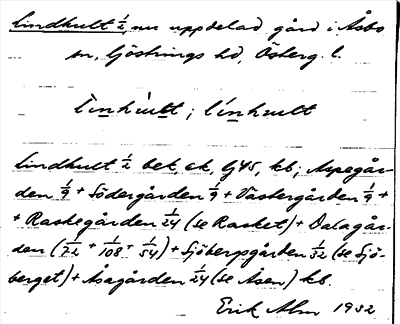 Lindhult 1/2, nu uppdelad gård i Åsbo
sn, Göstrings hd, Österg. l.
l̀ìnhùlt; línhult
Lindhult 1/2 bet. ek. Gj45, kb; Aspegår-
den 1/9 + Södergården 1/9 + Västergården 1/9 +
+ Raskegården 1/24 (se Rasket) + Dalagår-
den (1/72 + 1/108 + 1/54) + Sjöbergsgården 1/32 (se Sjö-
berget) + Åsagården 1/24 (se Åsen) kb.
Erik Alm 1932